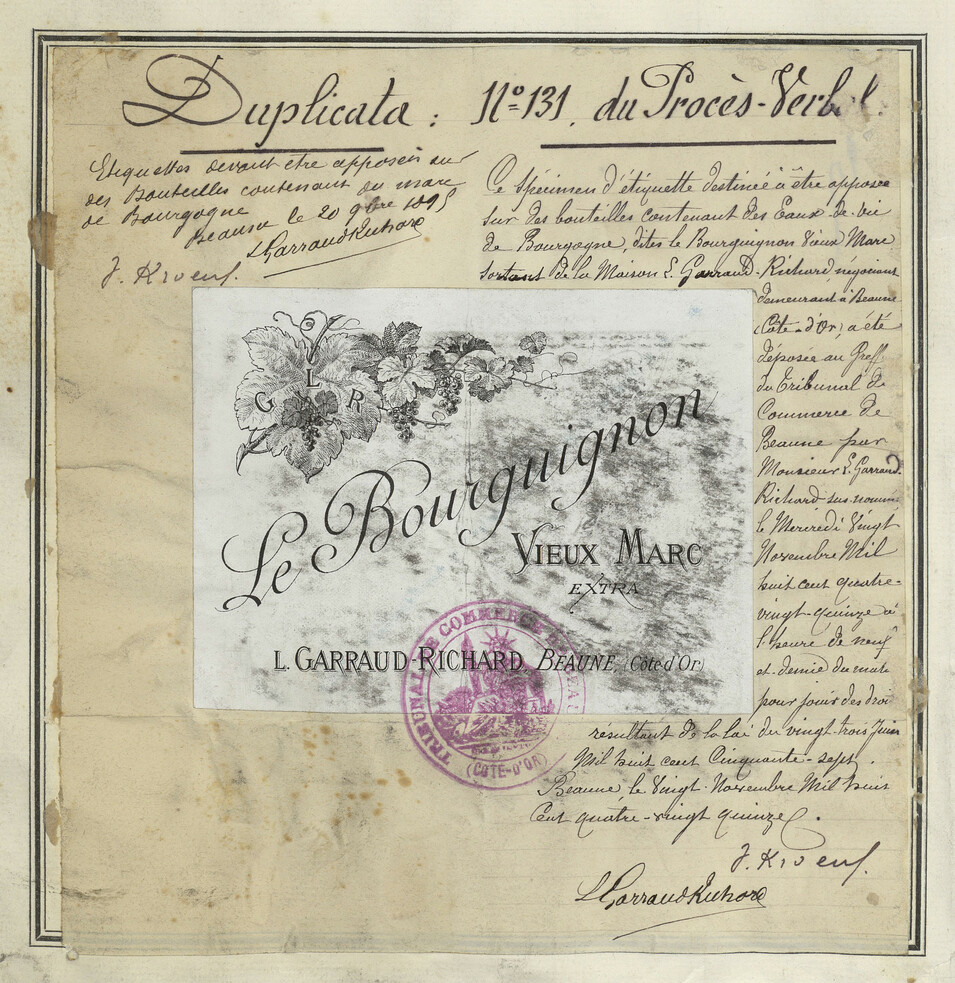 Duplicata : N° 131. du Procès-Verbal.
Etiquettes devant être apposées sur
des Bouteilles contenant du marc
de Bourgogne
Beaune le 20 9bre 1895
L Garraud Richard
Ce Spécimen d'étiquette destinée à être apposée
sur des bouteilles contenant des Eaux-de-vie
de Bourgogne, dites le Bourguignon Vieux Marc
sortant de la Maison L. Garraud-Richard négociant
demeurant à Beaune
(Côte-d'Or) a été
déposée au Greffe
du Tribunal de
Commerce de
Beaune par
Monsieur L. Garraud
Richard sus-nommé
le Mercredi Vingt
Novembre Mil
huit cent quatre-
vingt-quinze à
l'heure de neuf
et demie du matin
pour jouir des droits
résultant de la loi du vingt-trois Juin
Mil huit cent Cinquante-sept.
Beaune, le Vingt Novembre Mil huit
Cent quatre-vingt quinze.
L Garraud Richard
L
G R
Le Bourguignon
VIEUX MARC
EXTRA
L. GARRAUD-RICHARD, BEAUNE (Côte d'Or)
TRIBUNAL DE COMMERCE DE BEAUNE
(COTE-D'OR)